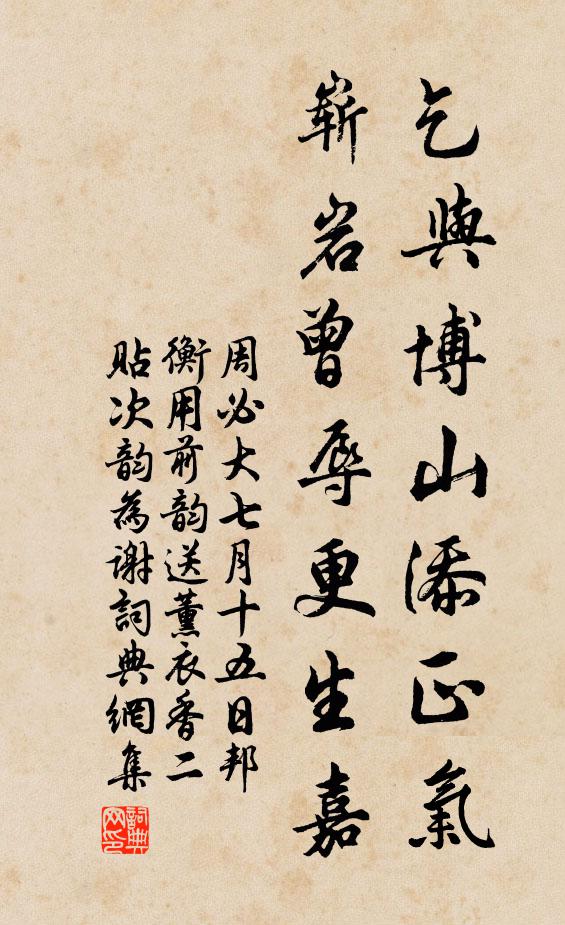 乞與博山添正氣
嶄岩曾辱更生嘉
周必大七月十五日邦
衡用前韵送薰衣香二
貼次韵為謝詞典網集
詞典网印